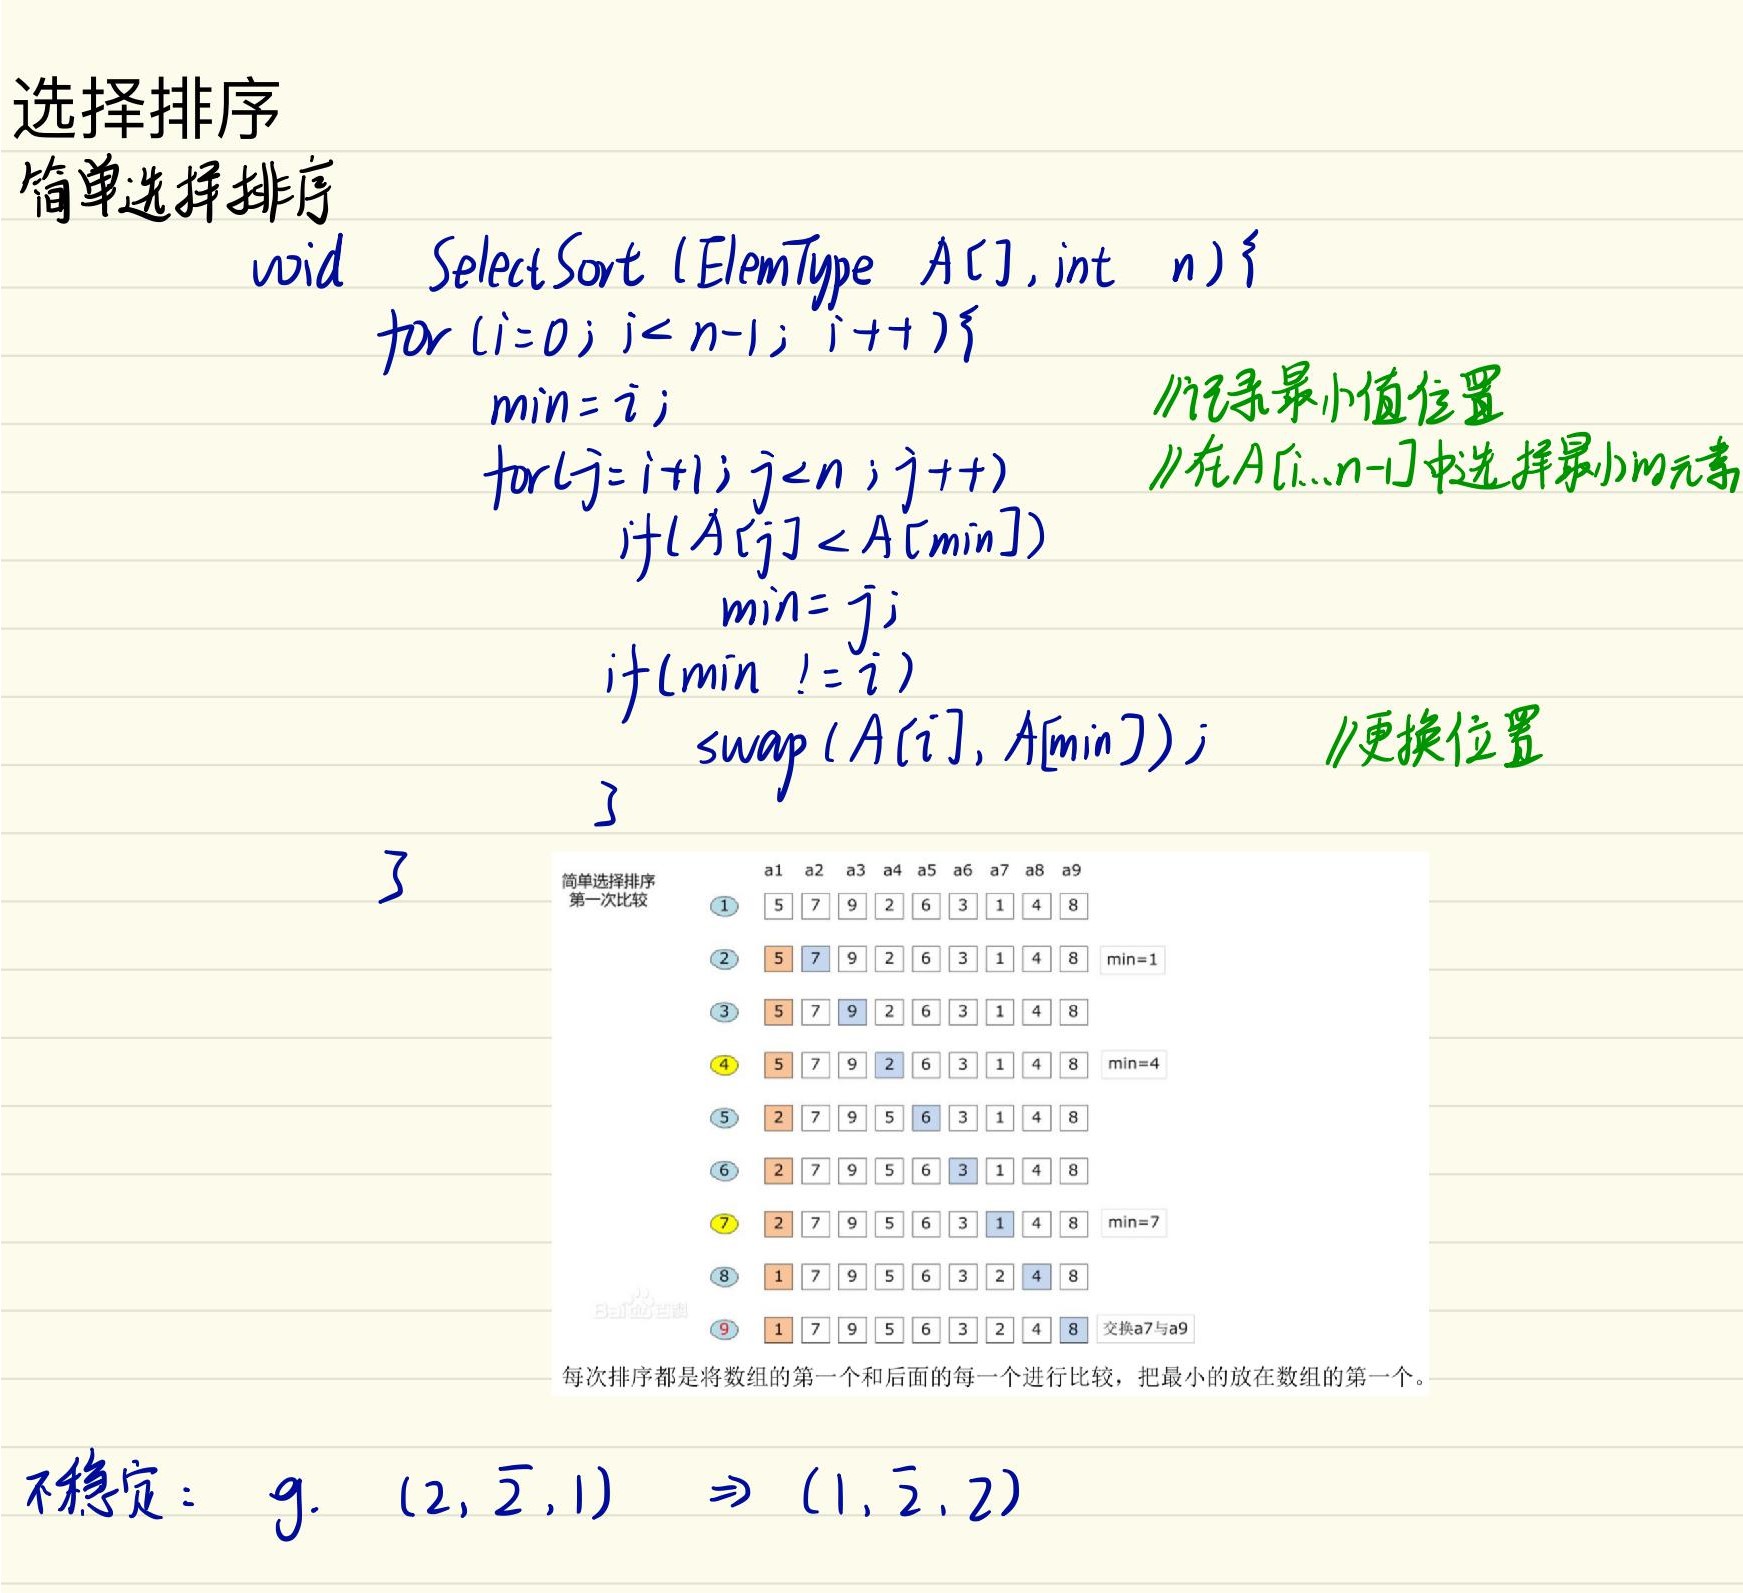 选择排序
简单选择排序
void SelectSort (ElemType A[], int n){
for (i=0; i< n-1; i++){
min = i; //记录最小值位置
for(j=i+1; j<n; j++) //在A[i...n-1]中选择最小的元素
if(A[j] < A[min])
min = j;
if(min != i)
swap(A[i], A[min]); //更换位置
}
}
a1 a2 a3 a4 a5 a6 a7 a8 a9
简单选择排序
第一次比较
1 5 7 9 2 6 3 1 4 8
2 5 7 9 2 6 3 1 4 8 min=1
3 5 7 9 2 6 3 1 4 8
4 5 7 9 2 6 3 1 4 8 min=4
5 2 7 9 5 6 3 1 4 8
6 2 7 9 5 6 3 1 4 8
7 2 7 9 5 6 3 1 4 8 min=7
8 1 7 9 5 6 3 2 4 8
Baidu百科
9 1 7 9 5 6 3 2 4 8 交换a7与a9
每次排序都是将数组的第一个和后面的每一个进行比较，把最小的放在数组的第一个。
不稳定： g. (2, 2̅, 1) ⇒ (1, 2̅, 2)